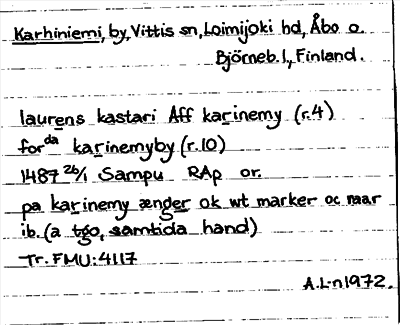 Karhiniemi, by, Vittis sn, Loimijoki hd, Åbo o.
Björneb. l., Finland.
laurens kastari Aff karinemy (r.4)
for da karinemyby (r.10)
1487 26/1 Sampu RAp or.
pa karinemy ænger ok wt marker oc naar
ib. (a tgo, samtida hand)
Tr. FMU: 4117
A.L-n 1972.